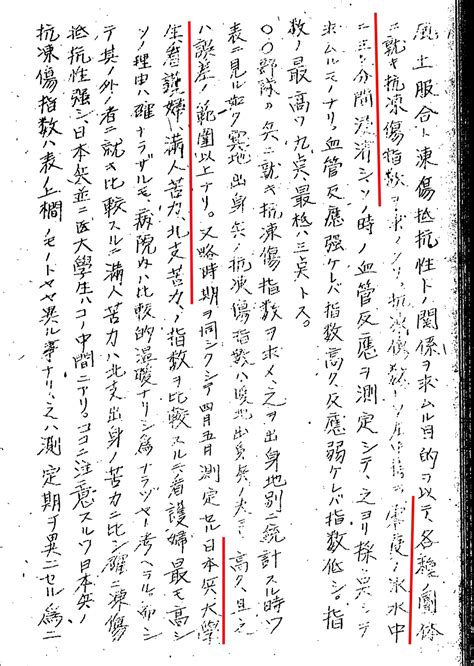 風土服合ト凍傷抵抗性トノ関係ヲ求ムル目的ヲ以テ、各種ノ團体
ニ就キ抗凍傷指数ヲ求メタリ。抗凍傷指数トハ 零度ノ氷水中
ニ三十分間浸漬シソノ時ノ血管反應ヲ測定シテ、之ヨリ採点シテ
求ムルモノナリ。血管反應強ケレバ指数高ク、反應弱ケレバ指数低シ。指
数ノ最高ハ九点、最低ハ三点トス。
〇〇部隊ノ兵ニ就キ抗凍傷指数ヲ求メ、之ヲ出身地別ニ統計スル時ハ
表ニ見ル如ク寒地出身兵ノ抗凍傷指数ハ暖地出身兵ノ夫ヨリ高ク、且ツ
ハ誤差ノ範圍以上ナリ。又略時期ヲ同シクシテ四月五日測定セル日本兵大學
生看護婦満人苦力、北支苦力、ノ指数ヲ比較スルニ看護婦最モ高シ
ソノ理由ハ確ナラザルモ、病院内ハ比較的温暖ナリシ為ナラズヤト考ヘラル。而シ
テ其ノ外ノ者ニ就キ比較スルニ満人苦力ハ北支出身ノ苦力ニ比シ確ニ凍傷
抵抗性強シ、日本兵並ニ医大學生ハコノ中間ニアリ。ココニ注意スルハ日本兵ノ
抗凍傷指数ハ表ノ上欄ノモノトヤヤ異ル事ナリ、之ハ測定期ヲ異ニセル為ニ